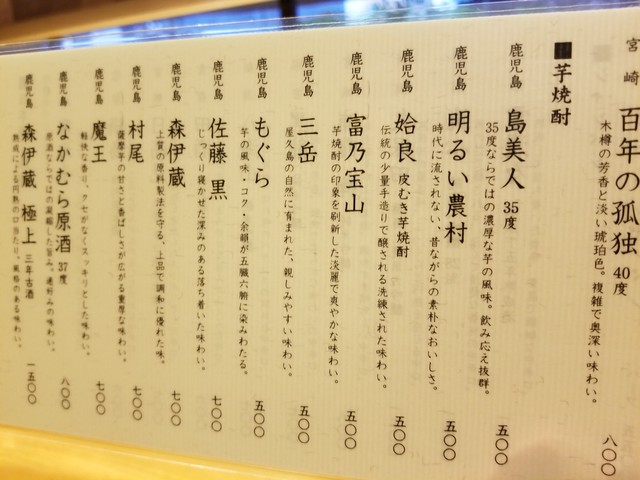 宮崎 百年の孤独 40度
木樽の芳香と淡い琥珀色。複雑で奥深い味わい。
八〇〇
芋焼酎
鹿児島 島美人 35度
35度ならではの濃厚な芋の風味。飲み応え抜群。
五〇〇
鹿児島 明るい農村
時代に流されない、昔ながらの素朴なおいしさ。
五〇〇
鹿児島 姶良 皮むき芋焼酎
伝統の少量手造りで醸される洗練された味わい。
五〇〇
鹿児島 富乃宝山
芋焼酎の印象を刷新した淡麗で爽やかな味わい。
五〇〇
鹿児島 三岳
屋久島の自然に育まれた、親しみやすい味わい。
五〇〇
鹿児島 もぐら
芋の風味・コク・余韻が五臓六腑に染みわたる。
五〇〇
鹿児島 佐藤 黒
じっくり寝かせた深みのある落ち着いた味わい。
七〇〇
鹿児島 森伊蔵
上質の原料製法を守る、上品で調和に優れた味。
七〇〇
鹿児島 村尾
薩摩芋の甘さと香ばしさが広がる重厚な味わい。
七〇〇
鹿児島 魔王
軽快な香り、クセがなくスッキリとした味わい。
七〇〇
鹿児島 なかむら原酒 37度
原酒ならではの凝縮した旨み。通好みの味わい。
八〇〇
鹿児島 森伊蔵 極上 三年古酒
熟成による円熟の口当たり。風格のある味わい。
一五〇〇